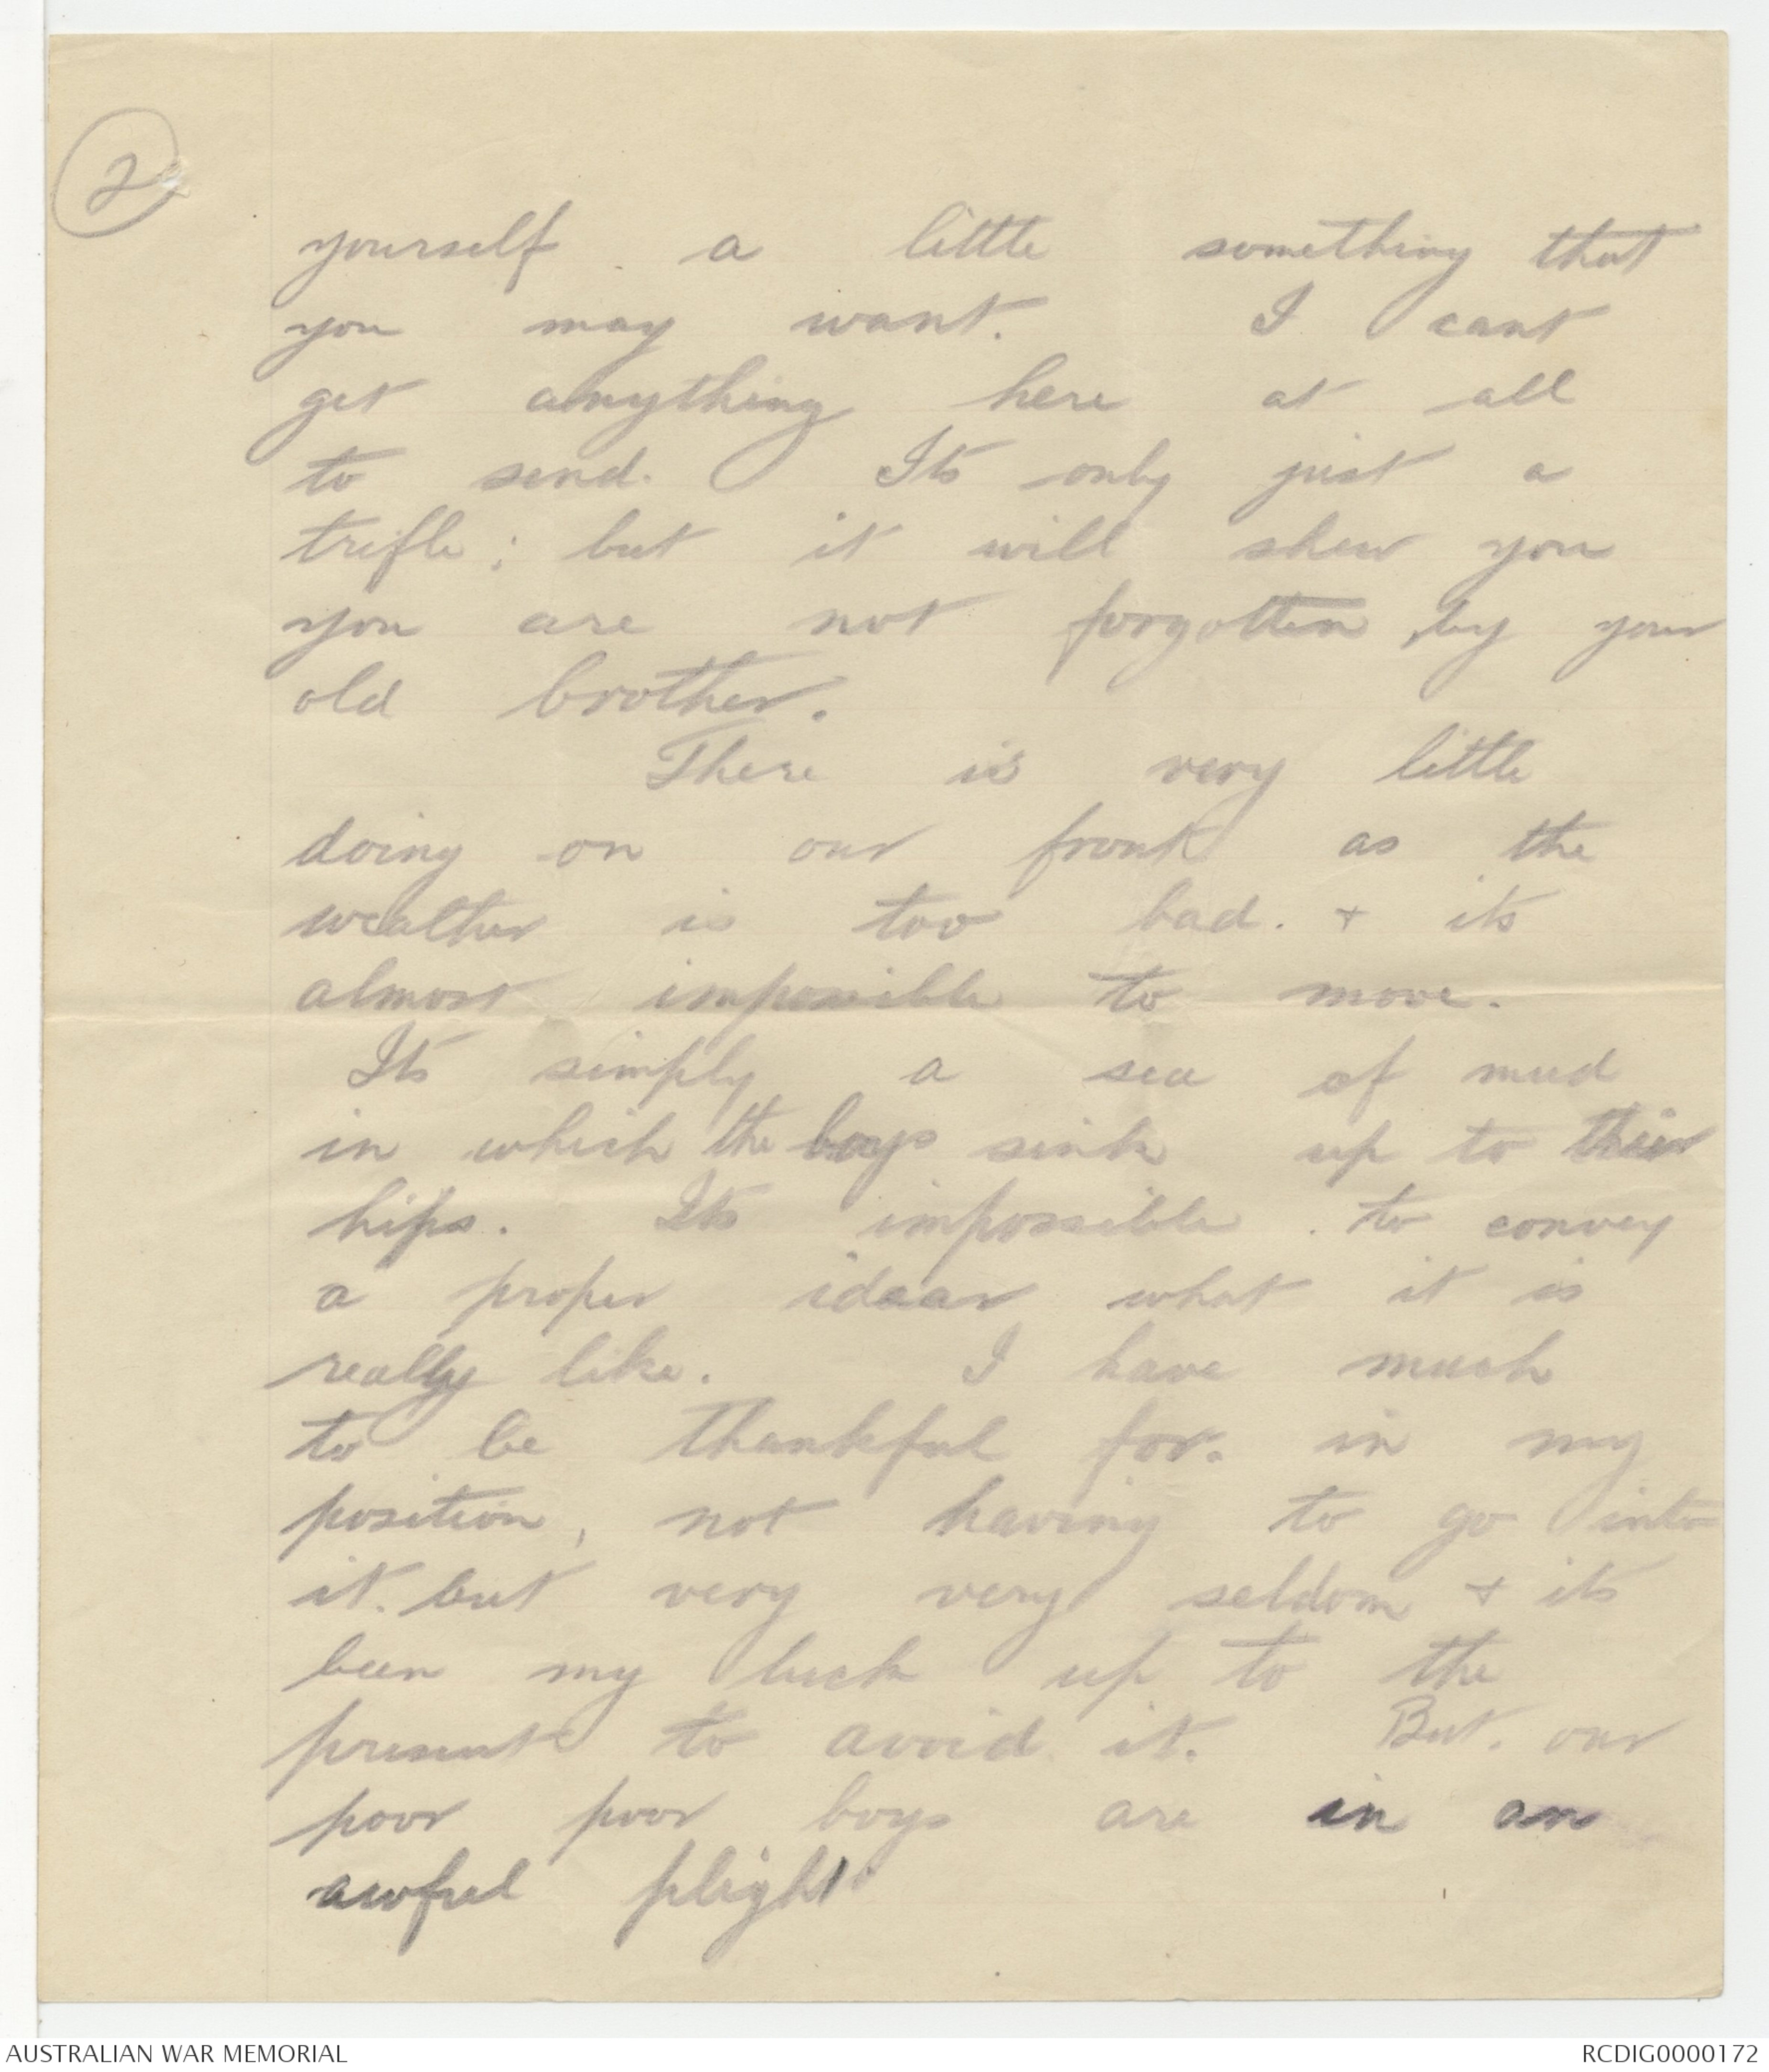 2
yourself a little something that
you may want. I cant
get anything here at all
to send. Its only just a
trifle; but it will shew you
you are not forgotten by your
old brother.
There is very little
doing on our front as the
weather is too bad. + its
almost impossible to move.
Its simply a sea of mud
in which the boys sink up to their
hips. Its impossible to convey
a proper ideaar what it is
really like. I have much
to be thankful for. in my
position, not having to go into
it. but very very seldom + its
been my luck up to the
present to avoid it. But. our
poor poor boys are in an
awful plight.
AUSTRALIAN WAR MEMORIAL RCDIG0000172